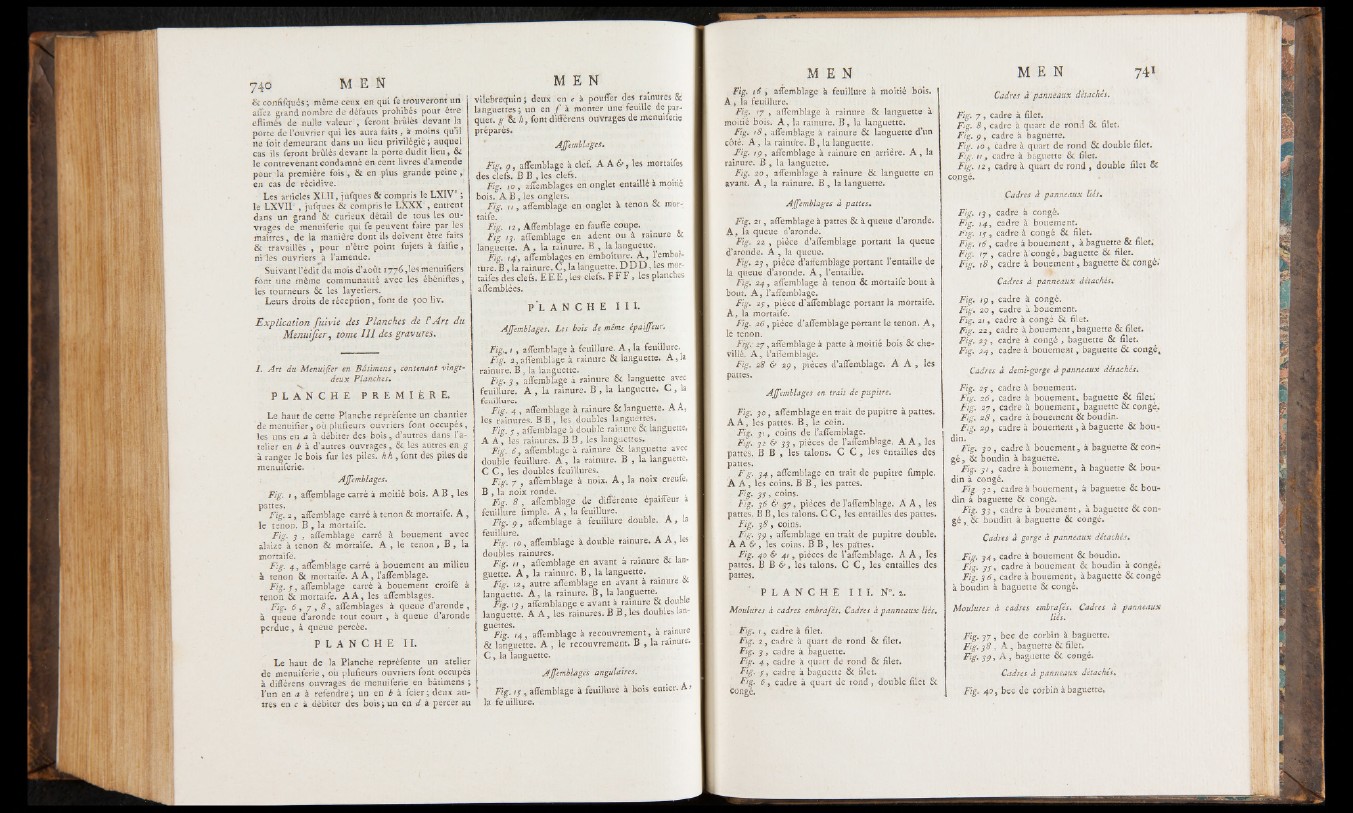 740 MEN
& confisqués; même ceux en qui se trouveront un
assez grand nombre de défauts prohibés pour être
estimés de nulle valeur, seront brûlés devant la
porte de l'ouvrier qui les aura faits, à moins qu'il
ne soit demeurant dans un lieu privilégié; auquel
cas ils seront brûlés devant la porte dudit lieu, &
le contrevenant condamné en cent livres d'amende
pour la première fois, & en plus grande peine,
en cas de récidive.
Les articles XLII, jusques & compris le LXIVe;
le LXVIIe, jusques & compris le LXXXe, entrent
dans un grand & curieux détail de tous les ou-
vrages de menuiserie qui se peuvent faire par les
maîtres, de la manière dont ils doivent être faits
& travaillés, pour n'être point sujets à saisie,
ni les ouvriers à l'amende.
Suivant l'édit du mois d'août 1776, les menuisiers
font une même communauté avec les ébénistes,
les tourneurs & les layetiers.
Leurs droits de réception, sont de 500 liv.
Explication suivie des Planches de l'Art du
Menuisier, tome III des gravures.
I. Art du Menuisier en Bâtimens, contenant vingt-
deux Planches.
PLANCHE PREMIÈRE.
Le haut de cette Planche représente un chantier
de menuisier, où plusieurs ouvriers sont occupés,
les uns en a à débiter des bois, d'autres dans l'a-
telier en b à d'autres ouvrages, & les autres en g
à ranger le bois sur les piles. h h, sont des piles de
menuiserie.
Assemblages.
Fig. 1, assemblage carré à moitié bois. A B, les
pattes.
Fig. 2, assemblage carré à tenon & mortaise. A,
le tenon. B, la mortaise.
Fig. 3, assemblage carré à bouement avec
alaize à tenon & mortaise. A, le tenon, B, la
mortaise.
Fig. 4, assemblage carré à bouement au milieu
à tenon & mortaise. A A, l'assemblage.
Fig. 5, assemblage carré à bouement croisé à
tenon & mortaise. A A, les assemblages.
Fig. 6, 7, 8, assemblages à queue d'aronde,
à queue d'aronde tout court, à queue d'aronde
perdue, à queue percée.
PLANCHE II.
Le haut de la Planche représente un atelier
de menuiserie, où plusieurs ouvriers sont occupés
à différens ouvrages de menuiserie en bâtimens;
l'un en a à refendre; un en b à scier; deux au-
tres en c à débiter des bois; un en d à percer au
MEN
vilebrequin; deux en e à pousser des rainures &
languettes; un en f à monter une feuille de par-
quet. g & h, sont différens ouvrages de menuiserie
préparés.
Assemblages.
Fig. 9, assemblage à clef. A A &, les mortaises
des clefs. B B, les clefs.
Fig. 10, assemblages en onglet entaillé à moitié
bois. A B, les onglets.
Fig. 11, assemblage en onglet à tenon & mor-
taise.
Fig. 12, Assemblage en fausse coupe.
Fig 13. assemblage en adent ou à rainure &
languette. A, la rainure. B, la languette.
Fig. 14, assemblages en emboîture. A, l'emboî-
ture. B, la rainure. C, la languette. D D D, les mor-
taises des clefs. E E E, les clefs. F F F, les planches
assemblées.
PLANCHE III.
Assemblages. Les bois de même épaisseur.
Fig. 1, assemblage à feuillure. A, la feuillure.
Fig. 2, assemblage à rainure & languette. A, la
rainure. B, la languette.
Fig. 3, assemblage à rainure & languette avec
feuillure. A, la rainure. B, la languette. C, la
feuillure.
Fig. 4, assemblage à rainure & languette. A A,
les rainures. B B, les doubles languettes.
Fig. 5, assemblage à double rainure & languette.
A A, les rainures. B B, les languettes.
Fig. 6, assemblage à rainure & languette avec
double feuillure. A, la rainure. B, la languette.
C C, les doubles feuillures.
Fig. 7, assemblage à noix. A, la noix creuse.
B, la noix ronde.
Fig. 8, assemblage de différente épaisseur à
feuillure simple. A, la feuillure.
Fig. 9, assemblage à feuillure double. A, la
feuillure.
Fig. 10, assemblage à double rainure. A A, les
doubles rainures.
Fig. 11, assemblage en avant à rainure & lan-
guette. A, la rainure. B, la languette.
Fig. 12, autre assemblage en avant à rainure &
languette. A, la rainure. B, la languette.
Fig. 13, assemblange e avant à rainure & double
languette. A A, les rainures. B B, les doubles lan-
guettes.
Fig. 14, assemblage à recouvrement, à rainure
& languette. A, le recouvrement. B, la rainure.
C, la languette.
Assemblages angulaires.
Fig. 15, assemblage à feuillure à bois entier. A,
la feuillure.
MEN
Fig. 16, assemblage à feuillure à moitié bois.
A, la feuillure.
Fig. 17, assemblage à rainure & languette à
moitié bois. A, la rainure. B, la languette.
Fig. 18, assemblage à rainure & languette d'un
côté. A, la rainure. B, la languette.
Fig. 19, assemblage à rainure en arrière. A, la
rainure. B, la languette.
Fig. 20, assemblage à rainure & languette en
avant. A, la rainure. B, la languette.
Assemblages à pattes.
Fig. 21, assemblage à pattes & à queue d'aronde.
A, la queue d'aronde.
Fig. 22, pièce d'assemblage portant la queue
d'aronde. A, la queue.
Fig. 23, pièce d'assemblage portant l'entaille de
la queue d'aronde. A, l'entaille.
Fig. 24, assemblage à tenon & mortaise bout à
bout. A, l'assemblage.
Fig. 25, pièce d'assemblage portant la mortaise.
A, la mortaise.
Fig. 26, pièce d'assemblage portant le tenon. A,
le tenon.
Fig. 27, assemblage à patte à moitié bois & che-
villé. A, l'assemblage.
Fig. 28 & 29, pièces d'assemblage. A A, les
pattes.
Assemblages en trait de pupitre.
Fig. 30, assemblage en trait de pupitre à pattes.
A A, les pattes. B, le coin.
Fig. 31, coins de l'assemblage.
Fig. 32 & 33, pièces de l'assemblage. A A, les
pattes. B B, les talons. C C, les entailles des
pattes.
Fig. 34, assemblage en trait de pupitre simple.
A A, les coins. B B, les pattes.
Fig. 35, coins.
Fig. 36 & 37, pièces de l'assemblage. A A, les
pattes. B B, les talons. C C, les entailles des pattes.
Fig. 38, coins.
Fig. 39, assemblage en trait de pupitre double.
A A &, les coins. B B, les pattes.
Fig. 40 & 41, pièces de l'assemblage. A A, les
pattes. B B &, les talons. C C, les entailles des
pattes.
PLANCHE III. N°. 2.
Moulures à cadres embrasés. Cadres à panneaux liés.
Fig. 1, cadre à filet.
Fig. 2, cadre à quart de rond & filet.
Fig. 3, cadre à baguette.
Fig. 4, cadre à quart de rond & filet.
Fig. 5, cadre à baguette & filet.
Fig. 6, cadre à quart de rond, double filet &
congé.
MEN 741
Cadres à panneaux détachés.
Fig. 7, cadre à filet.
Fig. 8, cadre à quart de rond & filet.
Fig. 9, cadre à baguette.
Fig. 10, cadre à quart de rond & double filet.
Fig. 11, cadre à baguette & filet.
Fig. 12, cadre à quart de rond, double filet &
congé.
Cadres à panneaux liés.
Fig. 13, cadre à congé.
Fig. 14, cadre à bouement.
Fig. 15, cadre à congé & filet.
Fig. 16, cadre à bouement, à baguette & filet.
Fig. 17, cadre à congé, baguette & filet.
Fig. 18, cadre à bouement, baguette & congé.
Cadres à panneaux détachés.
Fig. 19, cadre à congé.
Fig. 20, cadre à bouement.
Fig. 21, cadre à congé & filet.
Fig. 22, cadre à bouement, baguette & filet.
Fig. 23, cadre à congé, baguette & filet.
Fig. 24, cadre à bouement, baguette & congé.
Cadres à demi-gorge à panneaux détachés.
Fig. 25, cadre à bouement.
Fig. 26, cadre à bouement, baguette & filet.
Fig. 27, cadre à bouement, baguette & congé.
Fig. 28, cadre à bouement & boudin.
Fig. 29, cadre à bouement, à baguette & bou-
din.
Fig. 30, cadre à bouement, à baguette & con-
gé, & boudin à baguette.
Fig. 31, cadre à bouement, à baguette & bou-
din à congé.
Fig 32, cadre à bouement, à baguette & bou-
din à baguette & congé.
Fig. 33, cadre à bouement, à baguette & con-
gé, & boudin à baguette & congé.
Cadres à gorge à panneaux détachés.
Fig. 34, cadre à bouement & boudin.
Fig. 35, cadre à bouement & boudin à congé.
Fig. 36, cadre à bouement, à baguette & congé
à boudin à baguette & congé.
Moulures à cadres embrasés. Cadres à panneaux
liés.
Fig. 37, bec de corbin à baguette.
Fig. 38, A, baguette & filet.
Fig. 39, A, baguette & congé.
Cadres à panneaux détachés.
Fig. 40, bec de corbin à baguette.